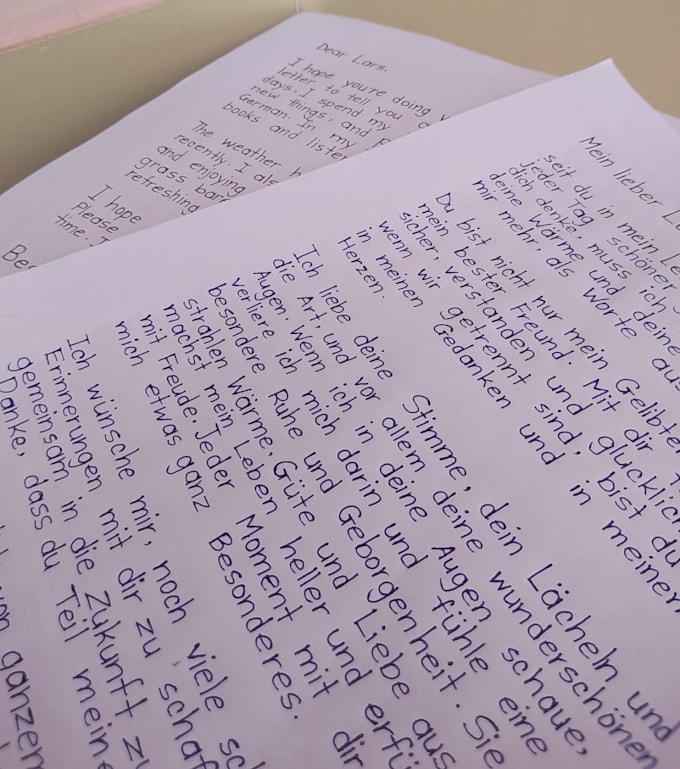 Dear Lars,
I hope you're doing
letter to tell you
days. I spend my
new things, and
German. In my
books and listen
The weather
recently. I
and enjoying
grass
refreshing
I hope
Please
time.
Mein lieber
seit du in mein
Jeder Tag schöner
dich denke, muss ich
deine Wärme und deine
mir mehr als Worte
Du bist nicht nur mein Gelibter
mein bester Freund. Mit dir
sicher, verstanden und glücklich
wenn wir getrennt sind, bist du
in meinen Gedanken und in meinen
Herzen.
Ich liebe deine Stimme, dein Lächeln und
die Art, und vor allem deine wunderschönen
Augen. Wenn ich in deine Augen schaue,
verliere ich mich darin und fühle eine
besondere Ruhe und Geborgenheit. Sie
strahlen Wärme, Güte und Liebe aus
machst mein Leben heller und erfü
mit Freude. Jeder Moment mit dir
mich etwas ganz Besonderes.
Ich wünsche mir, noch viele sc
Erinnerungen mit dir zu schaf
gemeinsam in die Zukunft zu
Danke, dass du Teil meine
von ganzem